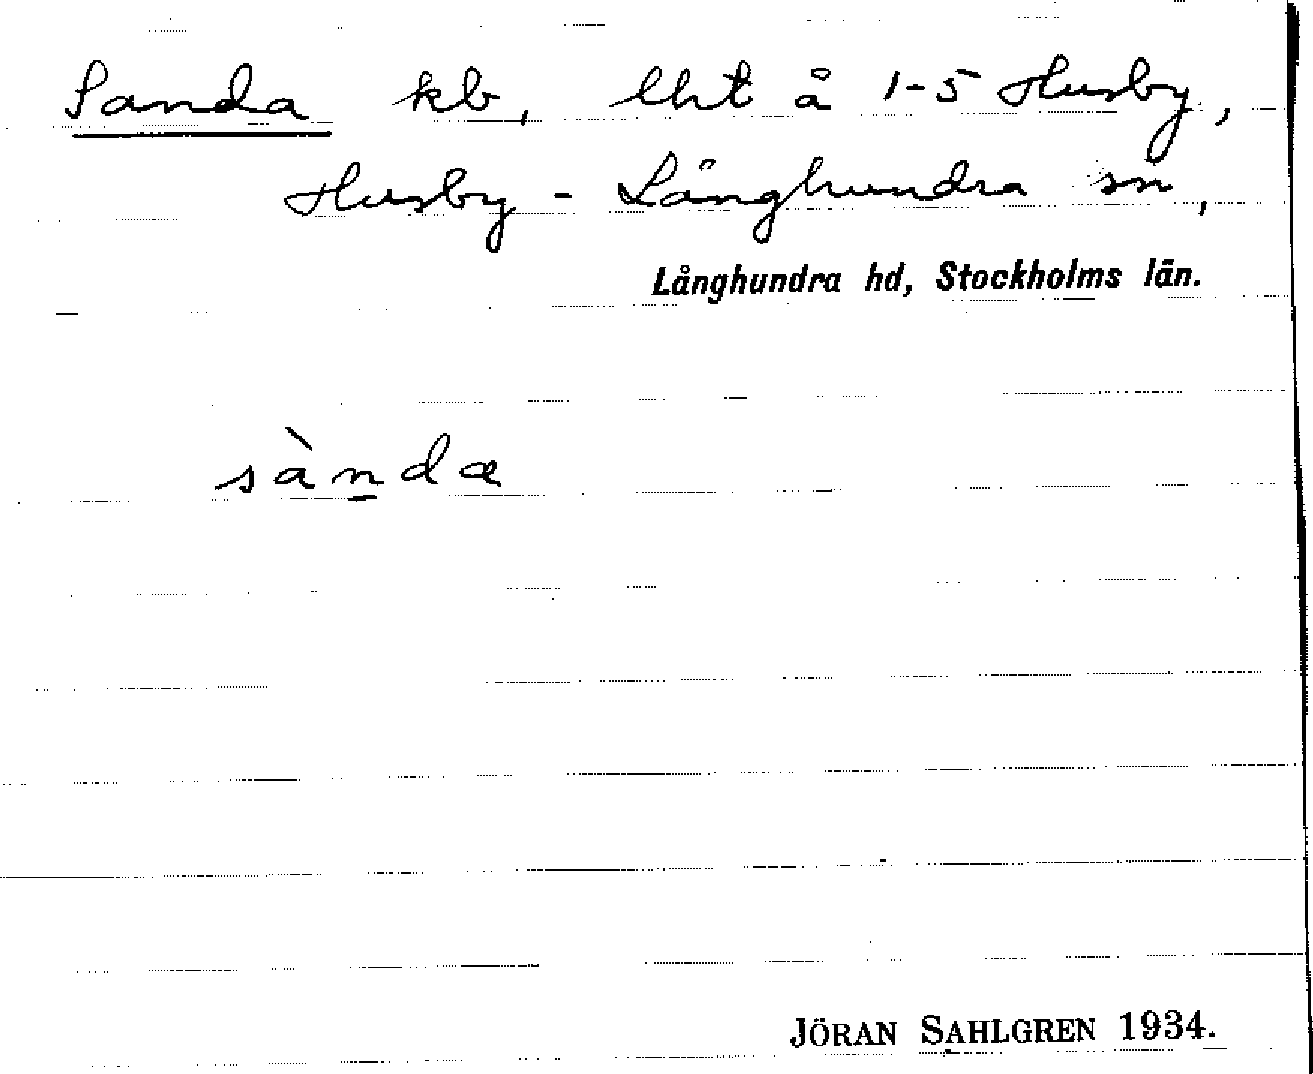 Sanda kb, lht å 1-5 Husby,
Husby - Långhundra sn,
Långhundra hd, Stockholms län.
sàndα
JÖRAN SAHLGREN 1934.